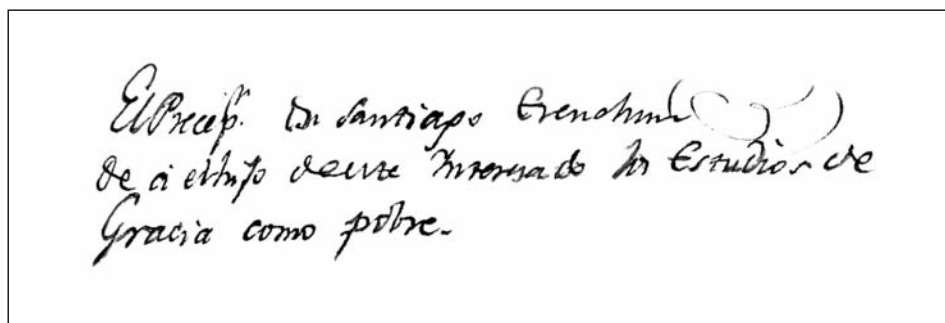 El Precep.r Dn Santiago
de á el hijo de este Interesado los Estudios de
Gracia como pobre.